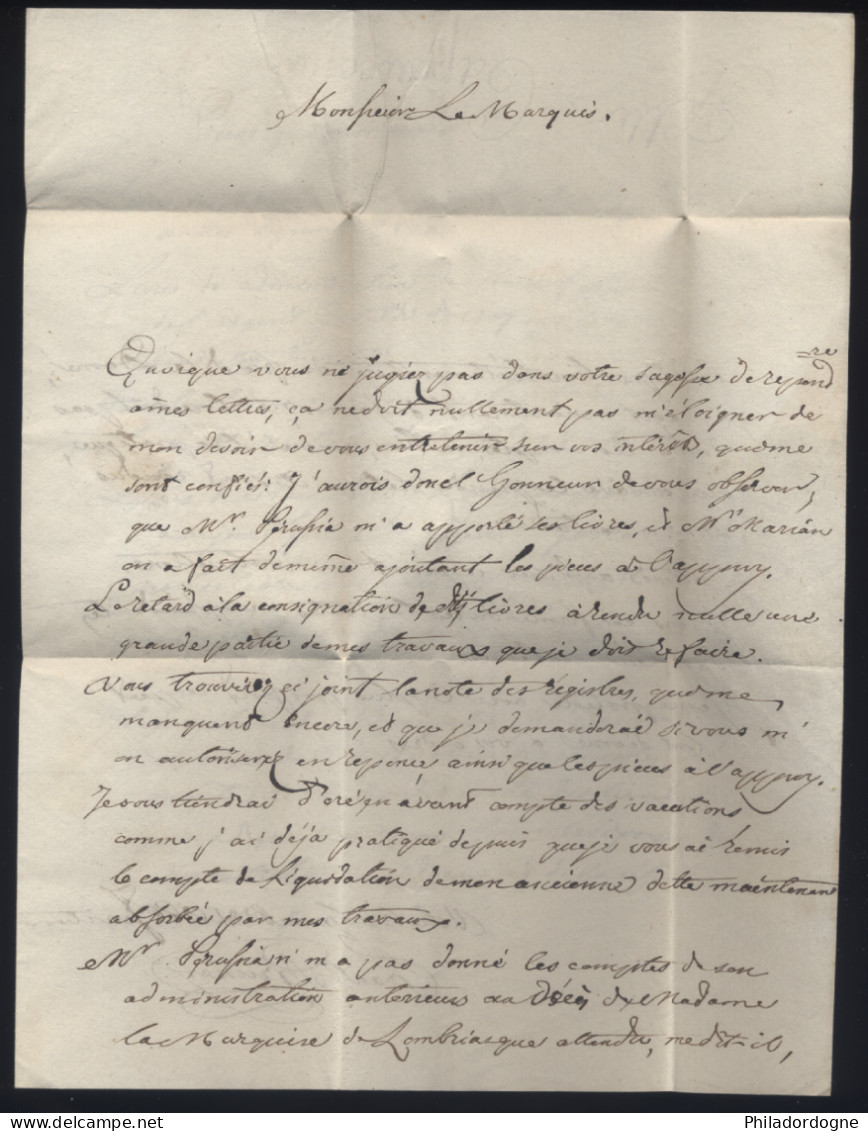 Monsieur Le Marquis.
Quoique vous ne jugiez pas dans votre sagesse de repond=re
à mes lettres, ça ne doit nullement pas m'éloigner de
mon devoir de vous entretenir sur vos intérêt, qui me
sont confiés: J'aurois donc l'honneur de vous observer,
que Mr. m'a apporté ses livres, et Mr
en a fait de même ajoutant les pieces à l'appuy.
Le retard à la consignation de livres à rendu nulle une
grande partie de mes travaux que je doit refaire.
Vous trouverez ci joint la note des registres, qui me
manquent encore, et que je demanderai si vous m'
en autorisez en reponce ainsi que les pieces à l'appuy.
Je vous tiendrai d'oréqu'avant compte des vacations
comme j'ai déja pratiqué depuis que je vous ai remis
le compte de Liquidation de mon ancienne dette maintenant
absorbée par mes travaux.
Mr. n'm'a pas donné les comptes de son
administration anterieurs au décès de Madame
la Marquise de Lombriasque attendu, me dit-il,
Philadordogne